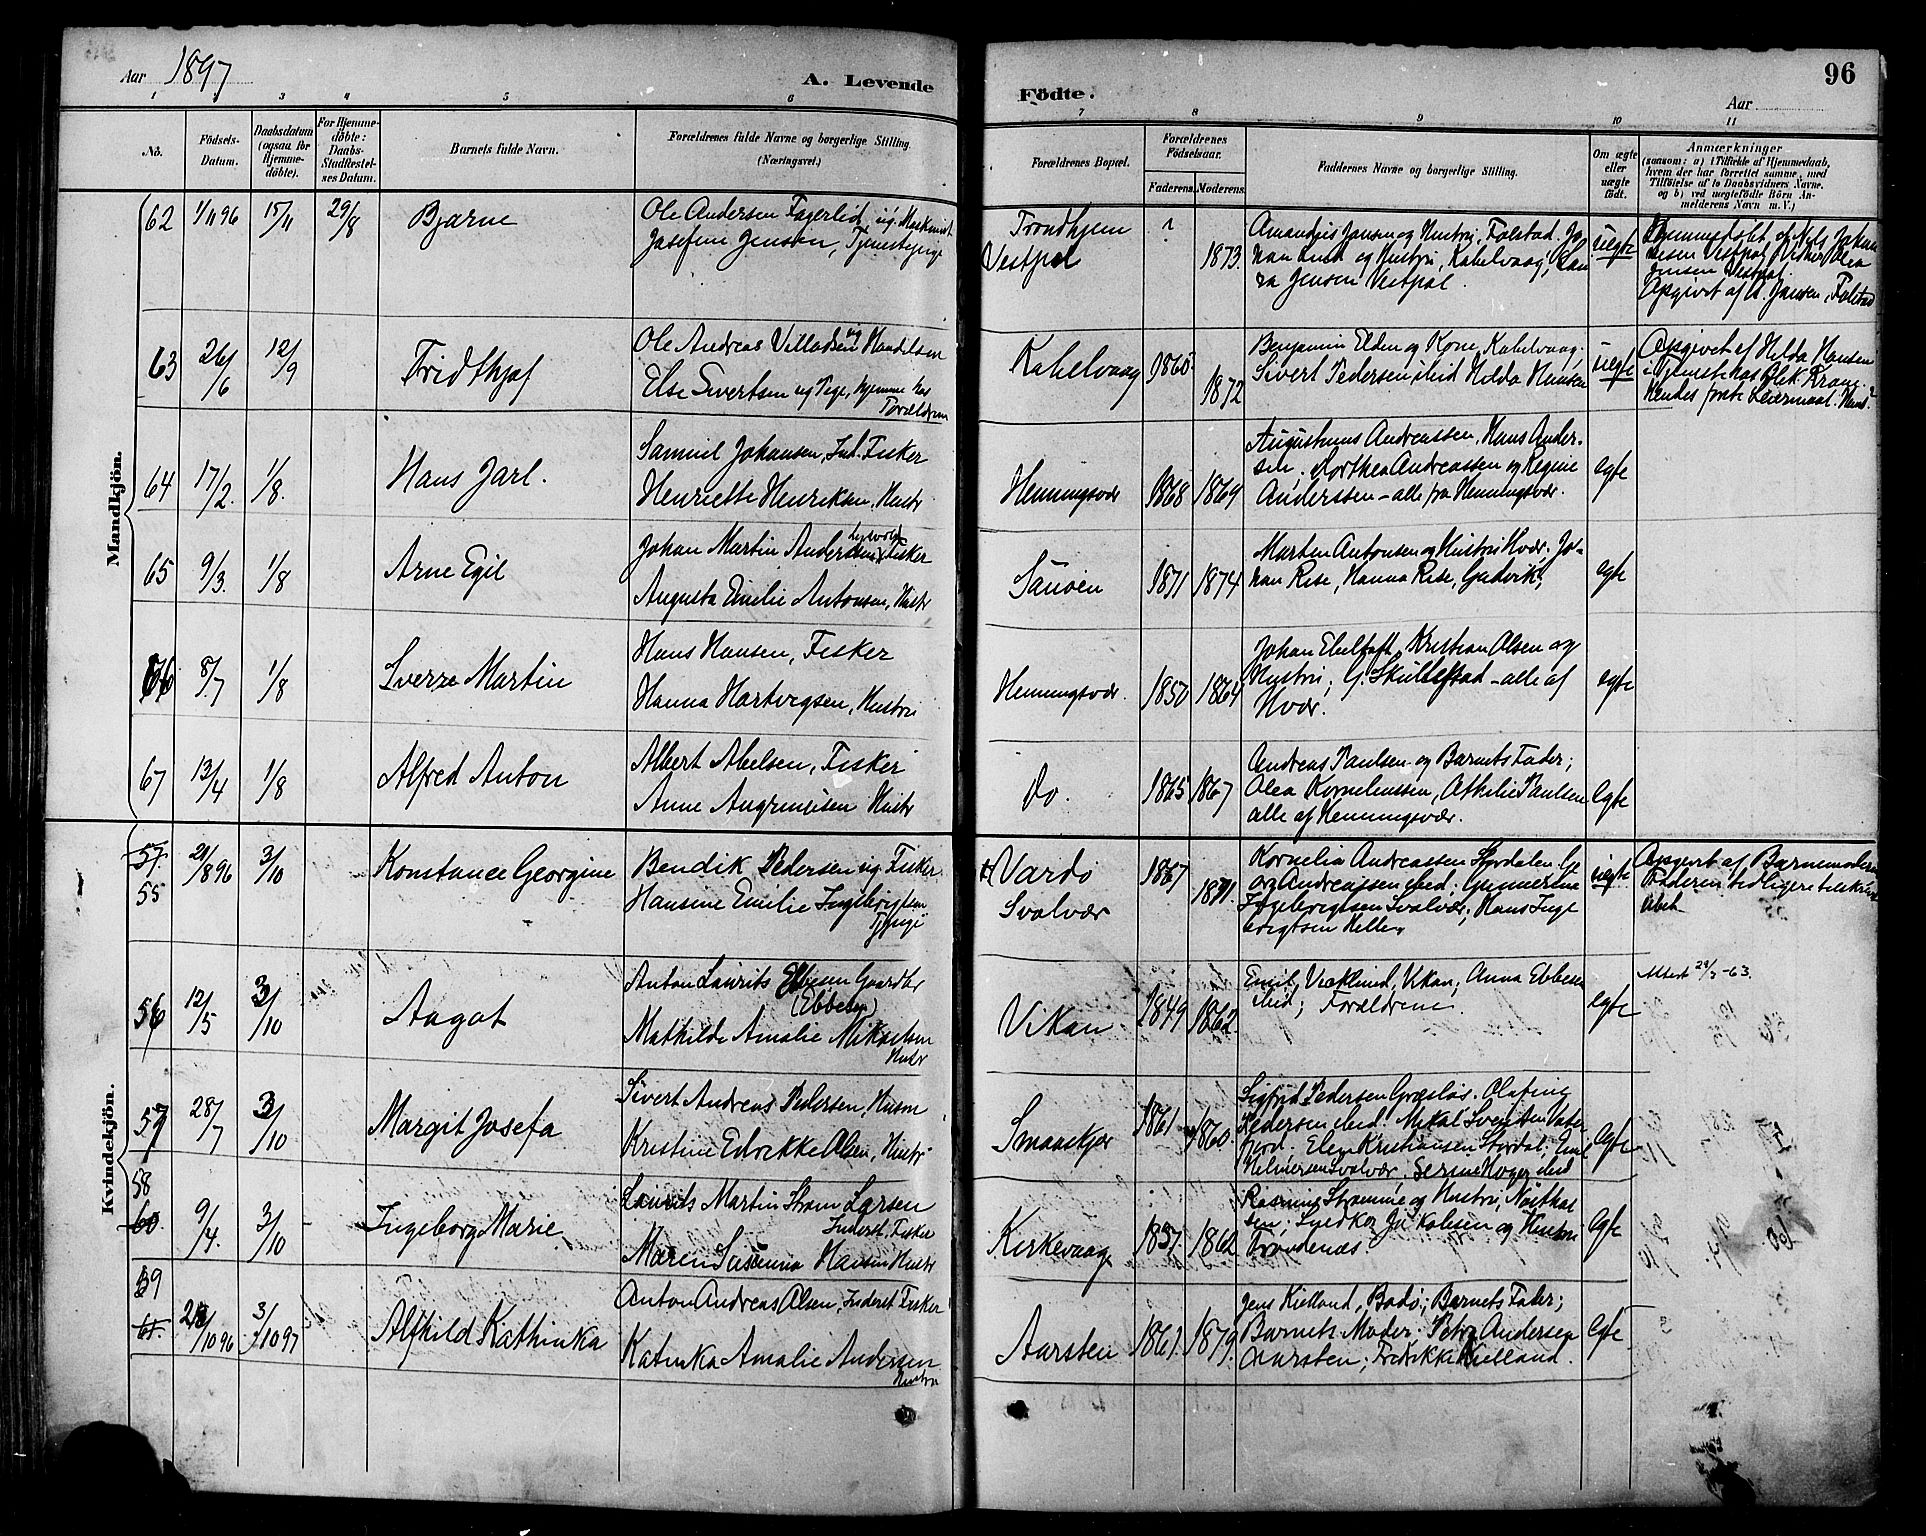 Aar 1897
A. Levende
Födte.
96
Aar
1 2 3 4 5 6 7 8 9 10 11
No.
Födsels-Datum.
Daabsdatum (ogsaa for Hjemmedöbte).
For Hjemmedöbte: Daabs-Stadfæstelses Datum.
Barnets fulde Navn.
Forældrenes fulde Navne og borgerlige Stilling. (Næringsvei.)
Forældrenes Bopæl.
Forældrenes Födselsaar.
Faderens. Moderens.
Faddernes Navne og borgerlige Stilling.
Om ægte eller uægte födt.
Anmærkninger
(saasom: a) i Tilfælde af Hjemmedaab, hvem der har forrettet samme, med Tilföielse af to Daabsvidners Navne, og b) ved uægtefödte Börn Anmelderens Navn m. V.)
Mandkjön.
62 1/11 96 15/11 29/8 Bjarne
Ole Andersen Fagerlid, ug. Maskinist
Josefine Jensen, Tjenestepige
Trondhjem
Vestpol
? 1873.
Amandus Jansen og Hustru, Falstad, Jo-
han Lind og Hustru, Kabelvaag, Lau-
ra Jensen Vestpol.
uegte
Hjemmedøbt af Nels Johan
Jensen Vestpol
Opgivet af A. Jansen, Falstad
63 26/6 12/9 Fridthjof
Ole Andreas Villadsen ug Handelsm
Else Sivertsen ug Pige, hjemme hos
Forældrene
Kabelvaag
1865 1872
Benjamin Elden og Kone, Kabelvaag;
Sivert Pedersen ibid Hilda Hansen
uegte
Opgivet af Hilda Hansen
i Tjeneste hos
Hendes første Leiermaal. Hans 2
64 17/2. 1/8. Hans Jarl.
Samuel Johansen, Ind. Fisker
Henriette Henriksen, Hustr
Henningsvær
1868 1869
Augustinus Andreassen, Hans Ander-
sen. Dorthea Andreassen og Regine
Anderssen – alle fra Henningsvær.
egte
65 9/3. 1/8 Arne Egil
Johan Martin Andersen Fisker
Augusta Emilie Antonsen, Hustr
Sauøen
1871 1874
Morten Antonsen og Hustru Hvær. Jo-
han Rise, Hanna Rise, Gudvik.
egte
66 8/7 1/8 Sverre Martin
Hans Hansen, Fisker
Hanna Hartvigsen, Hustru
Henningsvær.
1850 1864
Johan Ebeltoft, Kristian Olsen og
Hustru; G. Skullestad – alle af
Hvær.
egte
67 13/4 1/8 Alfred Anton
Albert Abelsen, Fisker
Anne Hustr
Do.
1865 1867
Andreas Paulsen og Barnets Fader;
Olea Korneliussen, Athelie Paulsen
alle af Henningsvær.
egte
Kvindekjön.
57.
55 21/8 96 3/10 Konstance Georgine
Bendik Pedersen ug Fisker
Hansine Emilie Ingebrigtsen
Tj. pige
Vardø
Svolvær
1867 1871.
Kornelia Andreassen Stordalen Ge
org Andreassen ibid;
Ingebrigtsen Svolvær; Hans Inge
brigtsen Helle
uegte
Opgivet af Barnemoderen
Faderen tidligere
56 12/5 3/10 Aagot
Anton Laurits Ebbesen Gaardbr
(Ebbesen)
Mathilde Amalie Mikaelsen
Hustr
Vikan
1849 1862
Emil Viklund, Vikan; Anna Ebbesen
ibid; Forældrene
egte
Attest 29/3 -63.
57 28/7 3/10 Margit Josefa
Sivert Andreas Pedersen, Husm
Kristine Edvikke Olsen, Hustr
Smaaskjær
1861 1860.
Sigfrid Pedersen Græsløs. Olafine
Pedersen ibid. Mikal Svendsen Vater
fjord, Elen Kristiansen Stordal, Emil
Helmersen Svolvær, Serine ibid
egte
58
60. 9/4. 3/10 Ingeborg Marie
Laurits Martin Strøm Larsen
Inderst, Fisker
Maren Susanna Hansen Hustr
Kirkevaag
1857 1862
Rasmus Strømme og Hustru,
sen; Snedker og Hustru
Trondenæs
egte
59
61. 28/10 96 3/10 97 Alfhild Kathinka
Anton Andreas Olsen, Inderst Fisker
Katinka Amalie Andersen
Hustru
Aarsten
1861 1879
Jens Kielland, Bodø; Barnets Fader;
Barnets Moder; Petra Andersen
Aarsten; Fredrikke Kielland.
egte